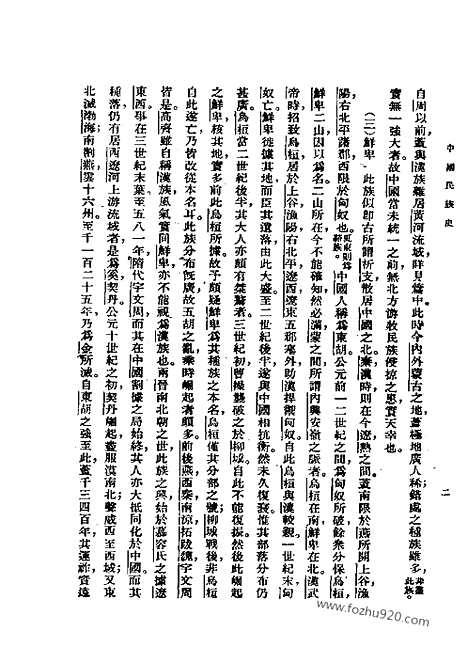 中國民族史
二
自周以前蓋與漢族雜居黃河流域詳見篇中此時今內外蒙古之地蓋極地廣人稀錯處之種族雖多非盡此族。
實無一強大者故中國當未統一之前無北方游牧民族侵掠之患實天幸也。
(三)鮮卑 此族似卽古所謂析支散居中國之北秦漢時則在今遼熱之間蓋南限於燕所開上谷漁
陽右北平諸郡西限於匈奴也。更東則為貉族。中國人稱為東胡公元前一二世紀之間為匈奴所破餘衆分保烏桓
鮮卑二山因以為名。二山所在今不能確知然必滿蒙之間所謂內興安嶺之脈者烏桓在南鮮卑在北漢武
帝時招致烏桓居於上谷漁陽右北平遼西遼東五郡塞外助漢捍禦匈奴。自此烏桓與漢較親一世紀末匈
奴亡鮮卑徙據其地而臣其遺落由此大盛至二世紀後半遂與中國相抗衡然未久復衰惟其部落分布仍
甚廣。烏桓當二世紀後半其大人亦頗有桀驁者三世紀初曹操襲破之於柳城自此不能復振然後此崛起
之鮮卑核其地實多前此烏桓所據故予頗疑鮮卑為其種族之本名烏桓僅其分部之號柳城戰後非烏桓
自此遂亡乃皆改從本名耳此族分布旣廣故五胡之亂乘時崛起者頗多前後燕西秦南涼拓跋魏宇文周
皆是。高齊雖自稱漢族風氣實同鮮卑亦不能視為漢族也兩晉南北朝之世此族之興始於慕容氏之據遼
東西事在三世紀末葉至五八一年隋代宇文周而其在中國割據之局始終其人亦大抵同化於中國。而其
種落仍有居西遼河上游流域者是為奚契丹。公元十世紀之初契丹崛起臺服漠南北聲威西至西域又東
北滅渤海南割燕雲十六州。至千一百二十五年乃為金所滅。自東胡之強至此蓋千三四百年其運祚實遠
www.fozhu920.com